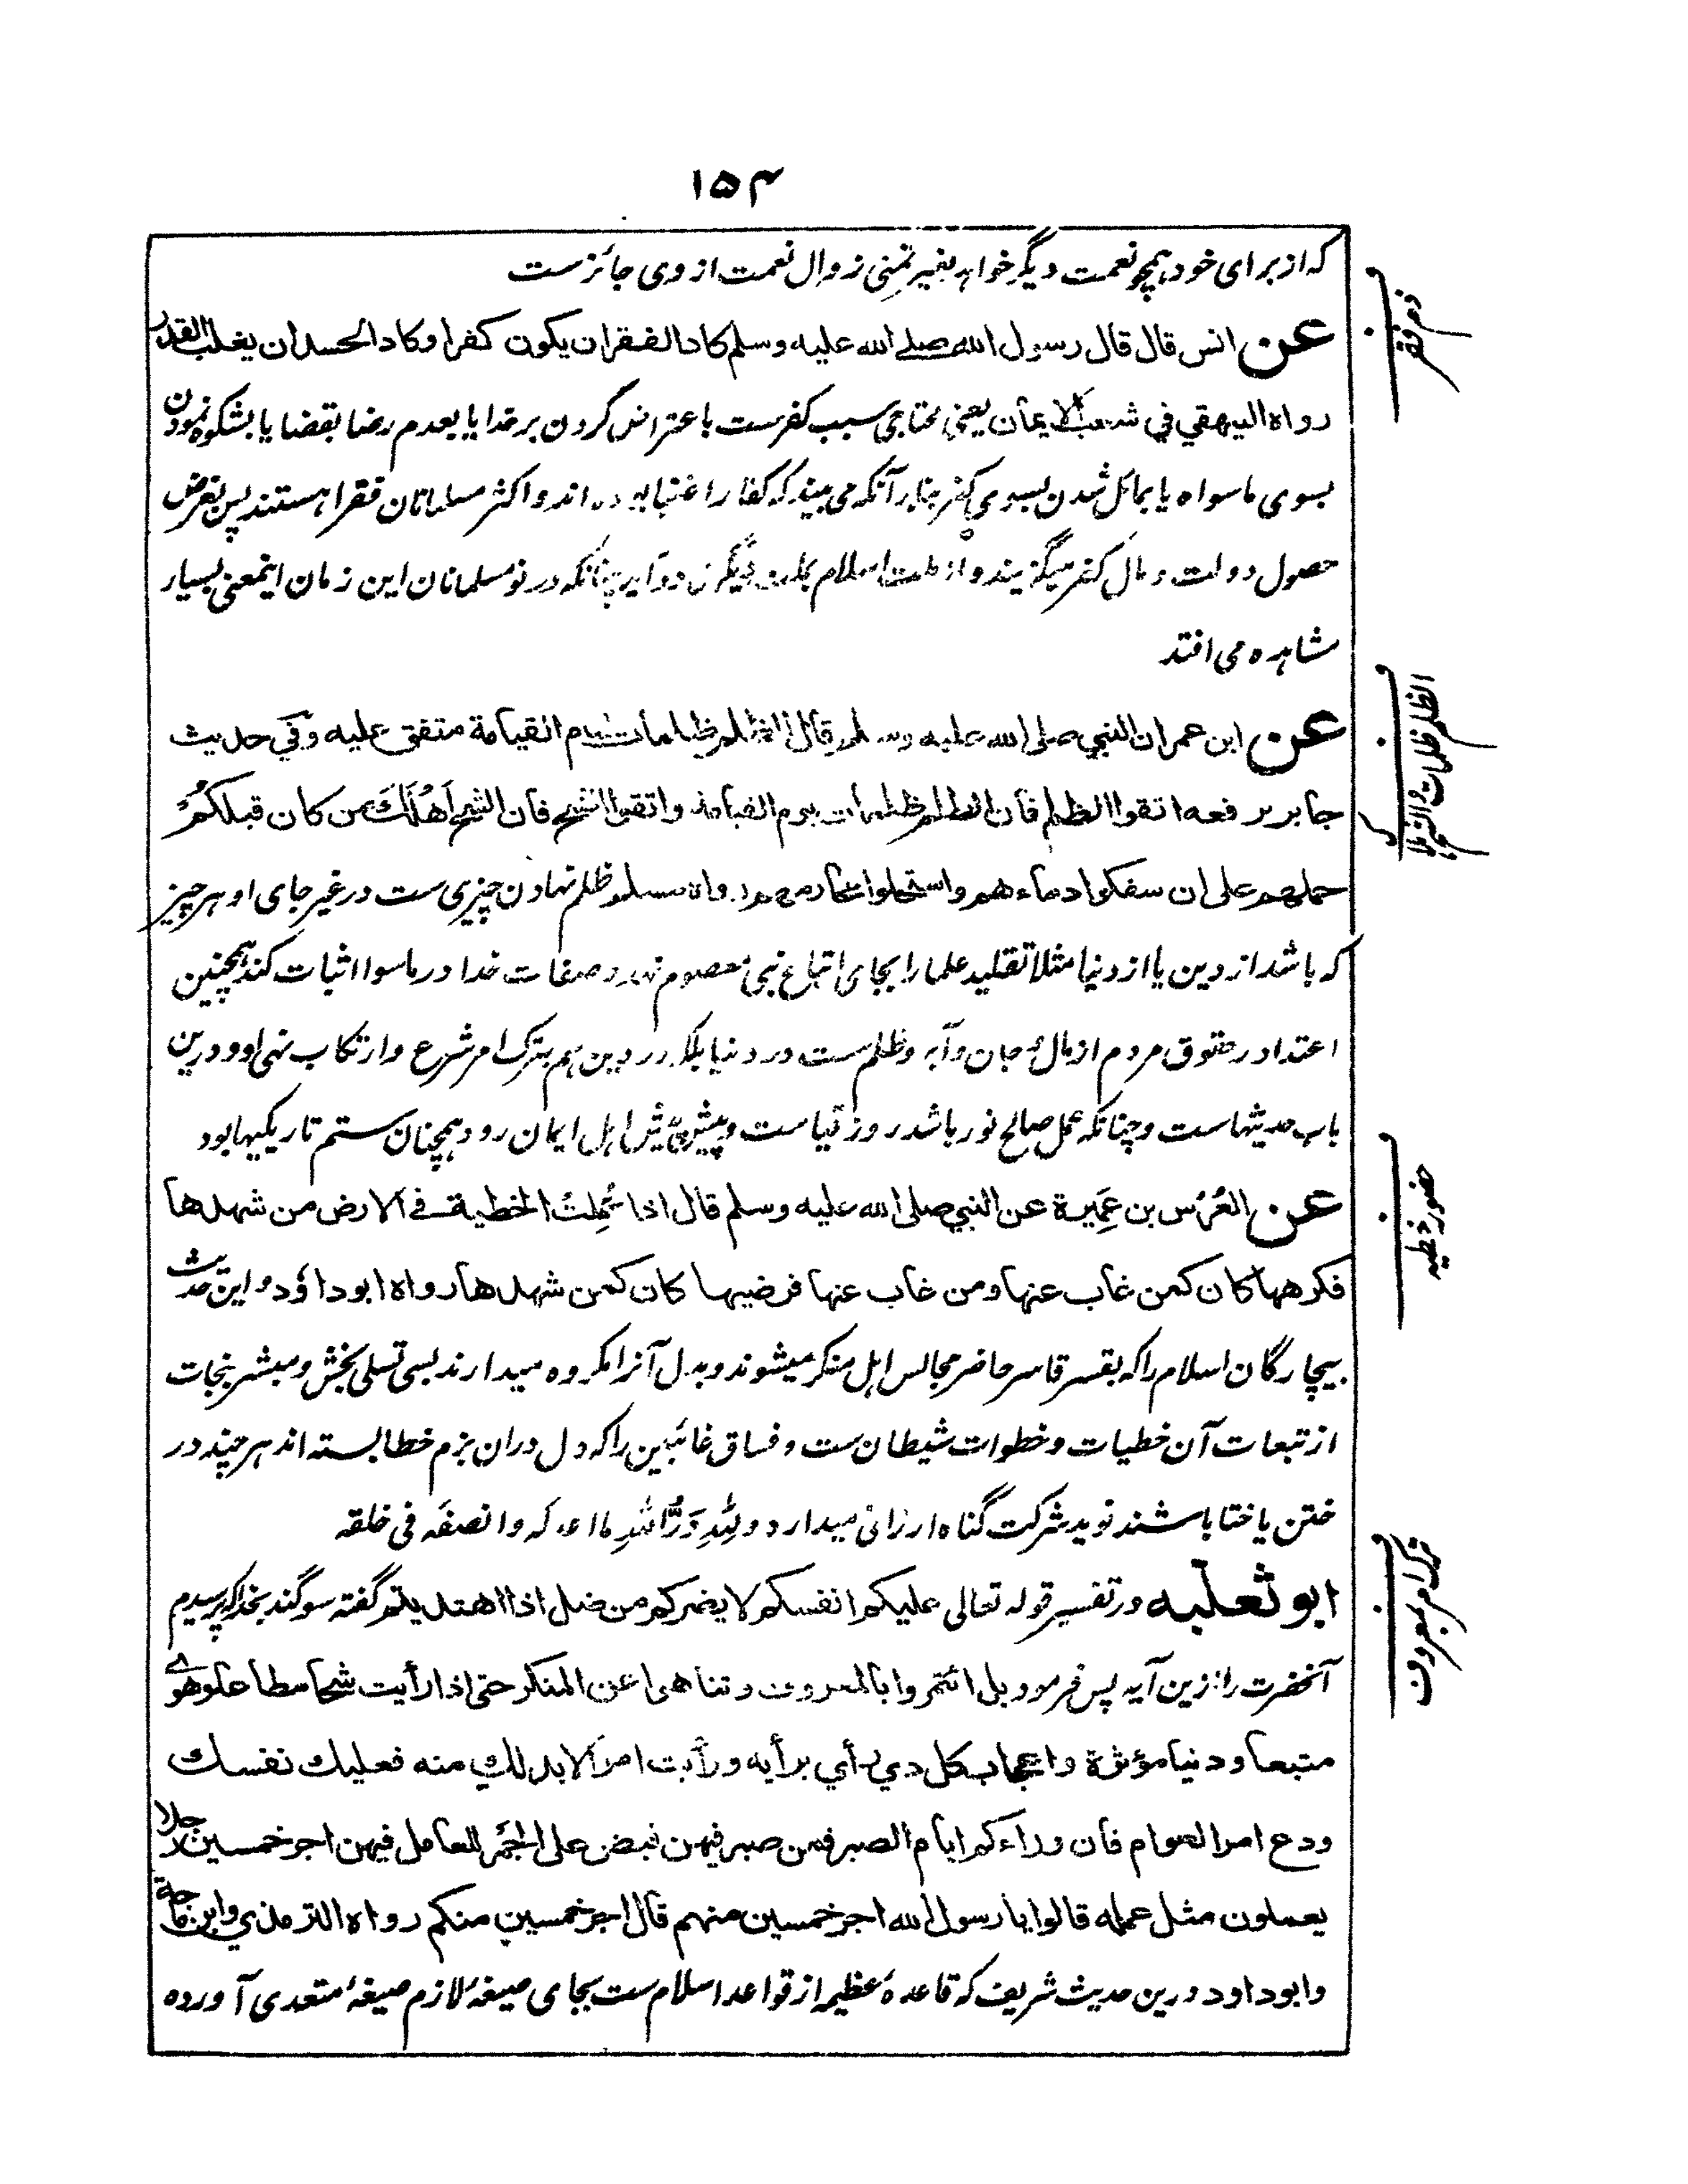 ۱۵۴
که از برای خود همچو نعمت دیگر خواهد بغیر تمنی زوال نعمت از وی جائزست
عن انس قال قال رسول الله صلے الله علیه وسلم کاد الفقران یکون کفرا وکاد الحسدان یغلب القدر
رواه البیهقي في شعب الایمان یعنی محتاجی سبب کفرست باعتراض کردن بر خدا یا بعدم رضا بقضا یا بشکوه نمودن
بسوی ماسواه یا بمائل شدن بسوی کفر بنابر آنکه می بیند که کفار اغنیا بوده اند و اکثر مسلمانان فقرا هستند پس بغرض
حصول دولت و مال کفر میگزیند و از ملت اسلام بملت دیگر در آید چنانکه در نو مسلمانان این زمان اینمعنی بسیار
مشاهده می افتد
عن ابن عمران النبي صلی الله علیه وسلم قال الظلم ظلمات یوم القیامة متفق علیه وفي حدیث
جابر یرفعه اتقوا الظلم فان الظلم ظلمات یوم القیامة واتقوا الشح فان الشح اَهْلَكَ من کان قبلکُمْ
حملهم علی ان سفکوا دماءهم واستحلوا محارمهم رواه مسلم ظلم نهادن چیزی ست در غیر جای او هر چیز
که باشد از دین یا از دنیا مثلا تقلید علما را بجای اتباع نبی معصوم نهد و صفات خدا در ماسوا اثبات کند همچنین
اعتدا در حقوق مردم از مال و جان و آبرو ظلم ست در دنیا بلکه در دین هم بترک امر شرع و ارتکاب نهی او و درین
باب حدیثهاست و چنانکه عمل صالح نور باشد روز قیامت و پیش پیش اهل ایمان رود همچنان ستم تاریکیها بود
عن العُرْس بن عَمِیرة عن النبي صلی الله علیه وسلم قال اذا عُمِلت الخطیة فے الارض من شهدها
فکرهها کان کمن غاب عنها ومن غاب عنها فرضیها کان کمن شهدها رواه ابوداؤد و این حدیث
بیچارگان اسلام را که بقسر قاسر حاضر مجالس اهل منکر میشوند و بدل آنرا مکروه میدارند بسی تسلی بخش و مبشر بنجات
از تبعات آن خطیات و خطوات شیطان ست و فساق غائبین را که دل دران بزم خطا بسته اند هر چند در
ختن یا ختا باشند نوید شرکت گناه ارزانی میدارد و لِلّٰهِ دَرُّ اللهِ ما اعدله وانصفه فی خلقه
ابو ثعلبه در تفسیر قوله تعالی علیکم انفسکم لا یضرکم من ضل اذا اهتدیتم گفته سوگند بخدا که پرسیدم
آنحضرت را ازین آیه پس فرمود بل ائتمروا بالمعروف وتناهوا عن المنکر حتی اذا رأیت شحا مطاعا وهوے
متبعا ودنیا مؤثرة واعجاب کل ذي رأي برأیه ورأیت امرا لابد لك منه فعلیك نفسك
ودع امر العوام فان وراءکم ایام الصبر فمن صبر فیهن قبض علی الجمر للعامل فیهن اجر خمسین رجلا
یعملون مثل عمله قالوا یا رسول الله اجر خمسین منهم قال اجر خمسین منکم رواه الترمذي وابن ماجة
وابوداود درین حدیث شریف که قاعدهٔ عظیمه از قواعد اسلام ست بجای صیغهٔ لازم صیغهٔ متعدی آورده
الظلم ظلمات
حضور خطیه
ترک امر بمعروف